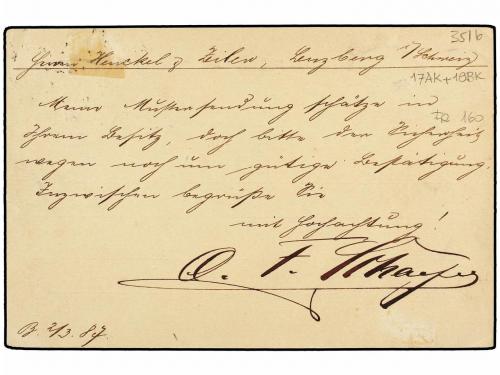 35/6
Herrn Henckel & Zeiler, Lenzberg i/Schweiz
17AK+18BK
Meine Mustersendung schätze in
FR 160
Ihrem Besitz, doch bitte der Sicherheit
wegen noch um gütige Bestätigung.
Inzwischen begrüße Sie
mit Hochachtung!
O. F. Schaefer
B. 2/3. 87.